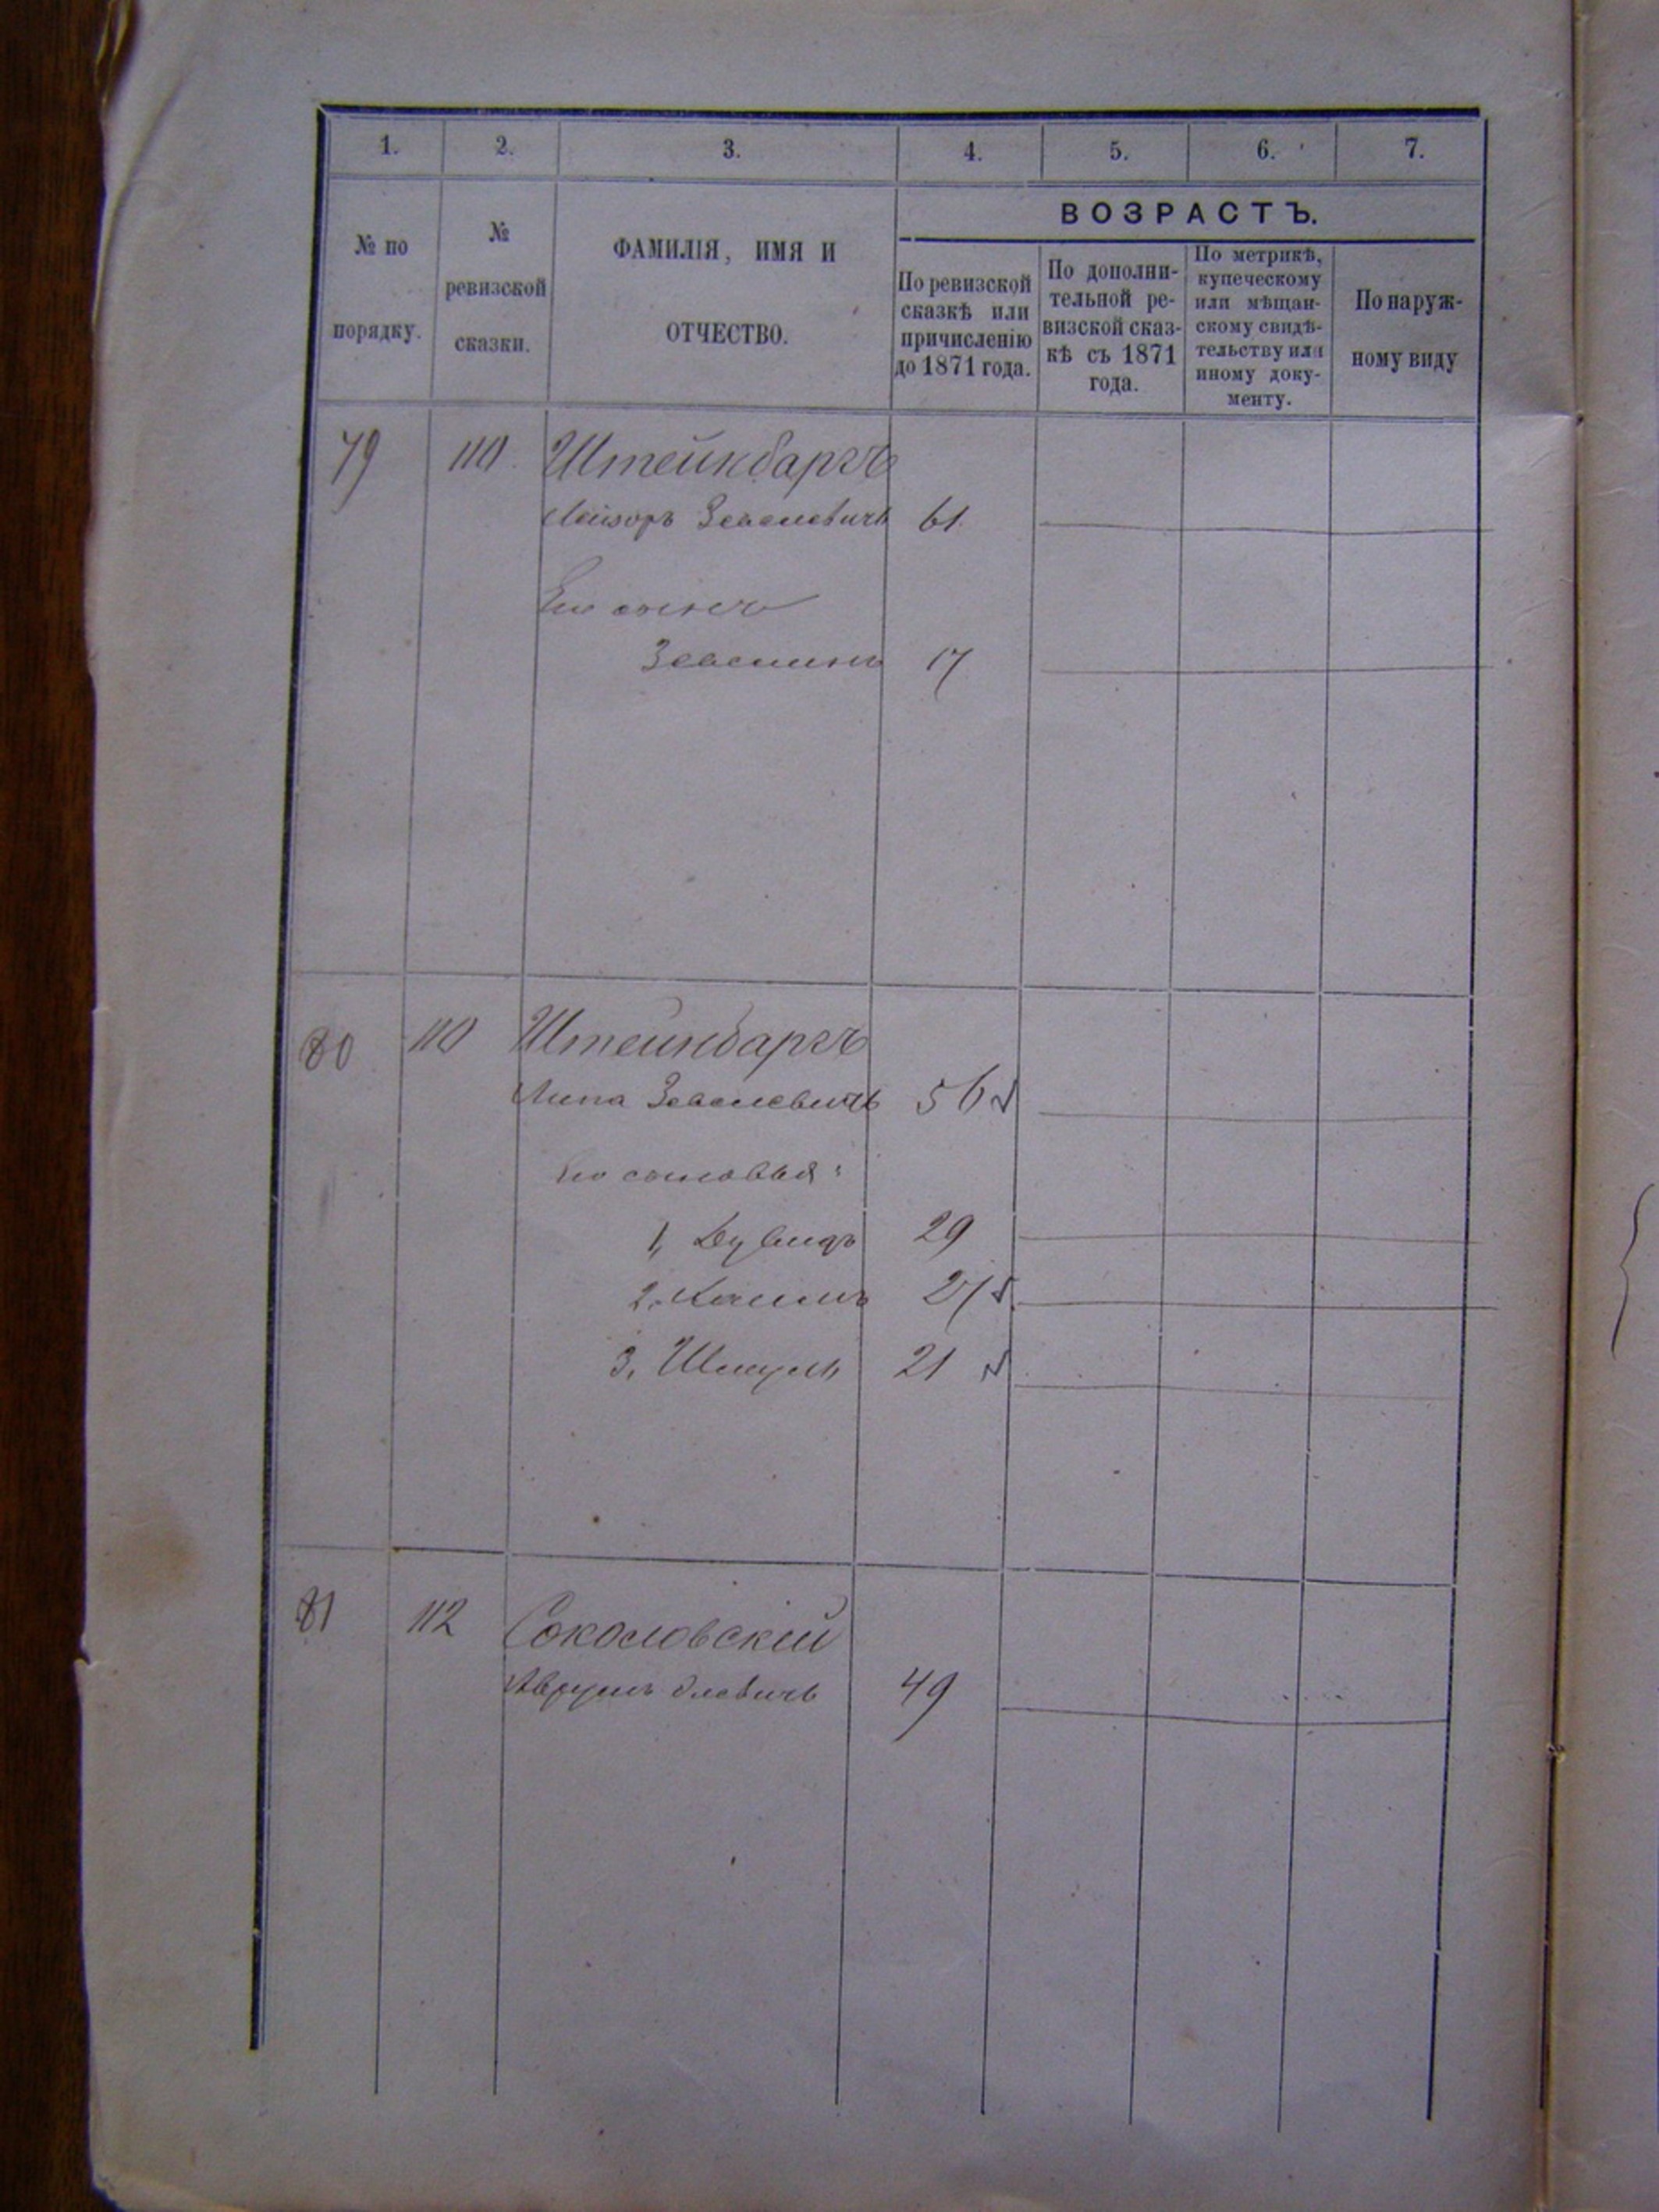 1. 2. 3. 4. 5. 6. 7.
№ по
порядку.
№
ревизской
сказки.
ФАМИЛІЯ, ИМЯ И
ОТЧЕСТВО.
ВОЗРАСТЪ.
По ревизской
сказкѣ или
причисленію
до 1871 года.
По дополни-
тельной ре-
визской сказ-
кѣ съ 1871
года.
По метрикѣ,
купеческому
или мѣщан-
скому свидѣ-
тельству или
иному доку-
менту.
По наруж-
ному виду
79 110 Штейнбаргъ
Лейзоръ 61
Его сынъ
17
80 110 Штейнбаргъ
Липа 56
Его сыновья:
1, Дувидъ 29
2. 27
3, Шмуль 21
81 112 Соколовскій
Аврумъ 49